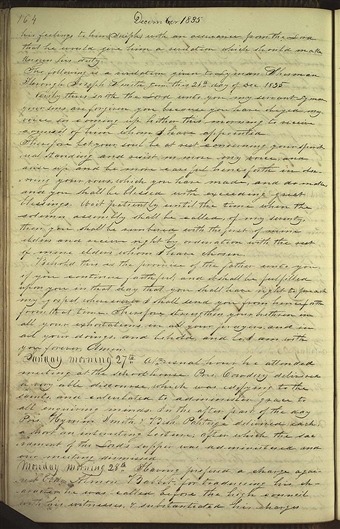 164 December 1835
his feelings to him Joseph with an assurance from the Lord
that he would give him a revelation which should make
known his duty.
The following is a revelation given to Lyman Sherman
through Joseph Smith on the 26th day of Dec 1835
Verily thus saith the Lord unto you my servant Lyman
your sins are forgiven you because you have obeyed my
voice in coming up hither this morning to receive
counsel of him whom I have appointed
Therefore let your soul be at rest concerning your spirit
ual standing and resist no more my voice, and
arise up and be more careful henceforth in obs
erving your vows which you have made, and do make
and you shall be blessed with exceeding great
blessings. Wait patiently until the time when the
solemn assembly shall be called of my servants
then you shall be numbered with the first of mine
elders and receive right by ordination with the rest
of mine elders whom I have chosen
Behold this is the promise of the father unto you
if you continue faithful and it shall be fulfilled
upon you in that day that you shall have right to preach
my gospel wheresoever I shall send you from henceforth
from that time. Therefore strengthen your brethren in
all your exhortations in all your prayers and in
all your doings, and behold and lo I am with
you forever Amen
Sunday morning 27th As usual attended
meeting at the School house Bro Cowdery delivered
a very able discourse which was edifying to the
saints and calculated to administer grace to
all enquiring minds. In the after part of the day
Bro Hyrum Smith & Bish Patridge delivered each
a short an interesting lecture after which the sac
rament of the Lord's supper was administered and
our meeting dismissed
Monday morning 28th Having prefered a charge again
st Elder Almon Babbit for traducing his ch
aracter was called before the high council
with his witnesses, & substantiated his charges